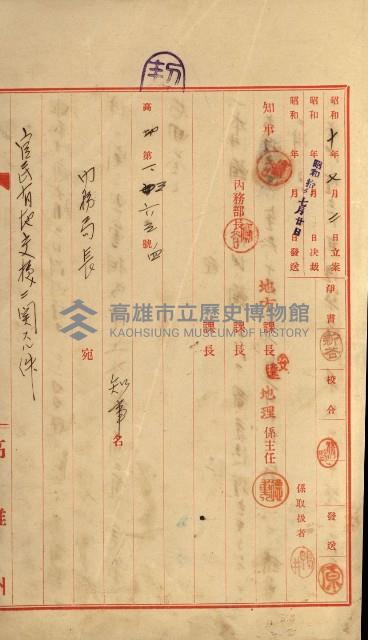 昭和十年七月二日立案
昭和 年 月 日決裁
昭和 年 月 日發送
昭和拾年七月廿日
淨書
校合
發送 原
係取扱者
知事
內務部長
地方課長
課長
課長
地理係主任
高 第 號
內務局長 宛
知事名
官民有地交換ニ関スル件
高雄州
高雄市立歷史博物館
KAOHSIUNG MUSEUM OF HISTORY